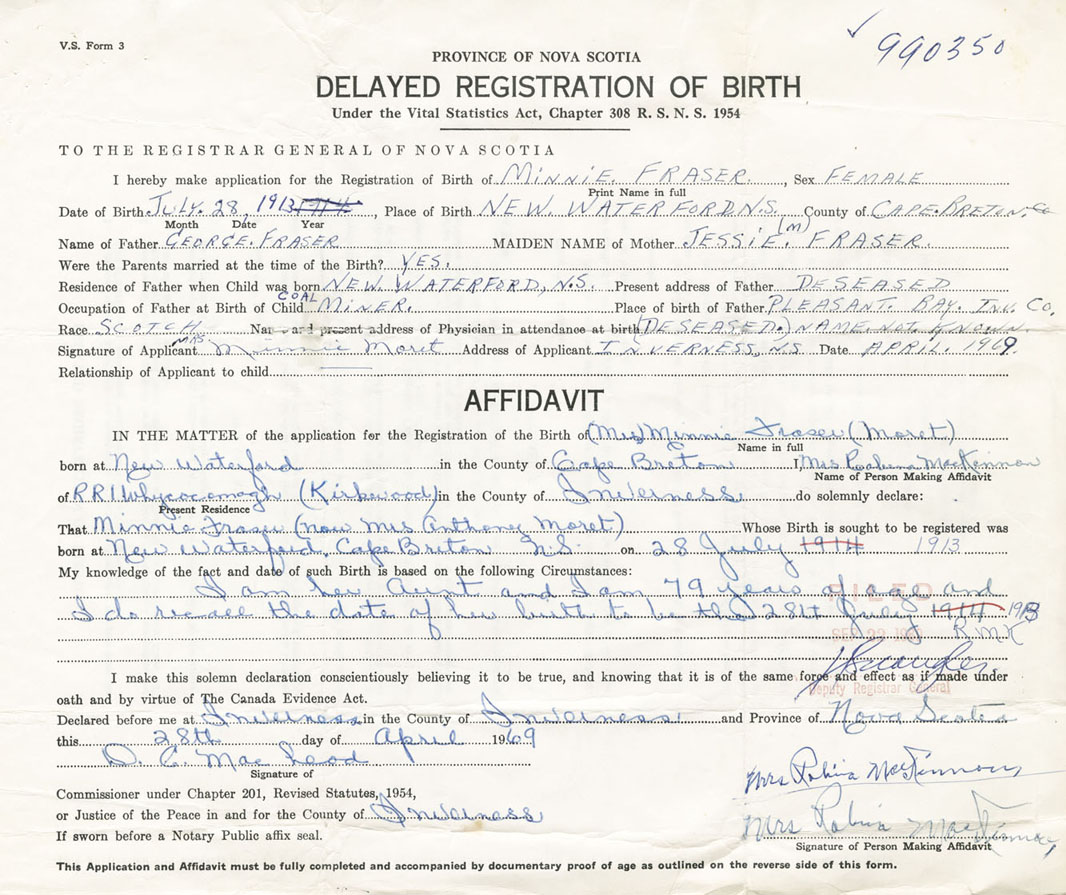 V.S. Form 3
✓ 990350
PROVINCE OF NOVA SCOTIA
DELAYED REGISTRATION OF BIRTH
Under the Vital Statistics Act, Chapter 308 R. S. N. S. 1954
TO THE REGISTRAR GENERAL OF NOVA SCOTIA
I hereby make application for the Registration of Birth of MINNIE. FRASER. , Sex FEMALE
Print Name in full
Date of Birth JULY. 28, 1913 1914 , Place of Birth NEW. WATERFORD, N.S. County of CAPE. BRETON. Co
Month Date Year
Name of Father GEORGE. FRASER MAIDEN NAME of Mother JESSIE. (M) FRASER.
Were the Parents married at the time of the Birth? YES.
Residence of Father when Child was born NEW. WATERFORD, N.S. Present address of Father DESEASED
Occupation of Father at Birth of Child COAL MINER. Place of birth of Father PLEASANT. BAY. INV. CO.
Race SCOTCH and present address of Physician in attendance at birth (DESEASED.) NAME. NOT. KNOWN.
Signature of Applicant MRS. Minnie Moret Address of Applicant INVERNESS, N.S. Date APRIL. 1969.
Relationship of Applicant to child
AFFIDAVIT
IN THE MATTER of the application for the Registration of the Birth of (Mrs) Minnie Fraser (Moret)
Name in full
born at New Waterford in the County of Cape Breton I, Mrs Roabena MacKinnon
Name of Person Making Affidavit
of R R 1 Whycocomagh (Kirkwood) in the County of Inverness do solemnly declare:
Present Residence
That Minnie Fraser (now Mrs Anthony Moret) Whose Birth is sought to be registered was
born at New Waterford, Cape Breton N.S. on 28 July 1914 1913
My knowledge of the fact and date of such Birth is based on the following Circumstances:
I am her Aunt and I am 79 years of age and
I do recall the date of her birth to be the 28th July 1914 1913
FILED
R.M.K
I make this solemn declaration conscientiously believing it to be true, and knowing that it is of the same force and effect as if made under
Deputy Registrar General
oath and by virtue of The Canada Evidence Act.
Declared before me at Inverness in the County of Inverness and Province of Nova Scotia
this 28th day of April 1969
D. C. MacLeod
Signature of
Mrs Robina MacKinnon
Commissioner under Chapter 201, Revised Statutes, 1954,
or Justice of the Peace in and for the County of Inverness
Mrs Robina MacKinnon
If sworn before a Notary Public affix seal.
Signature of Person Making Affidavit
This Application and Affidavit must be fully completed and accompanied by documentary proof of age as outlined on the reverse side of this form.